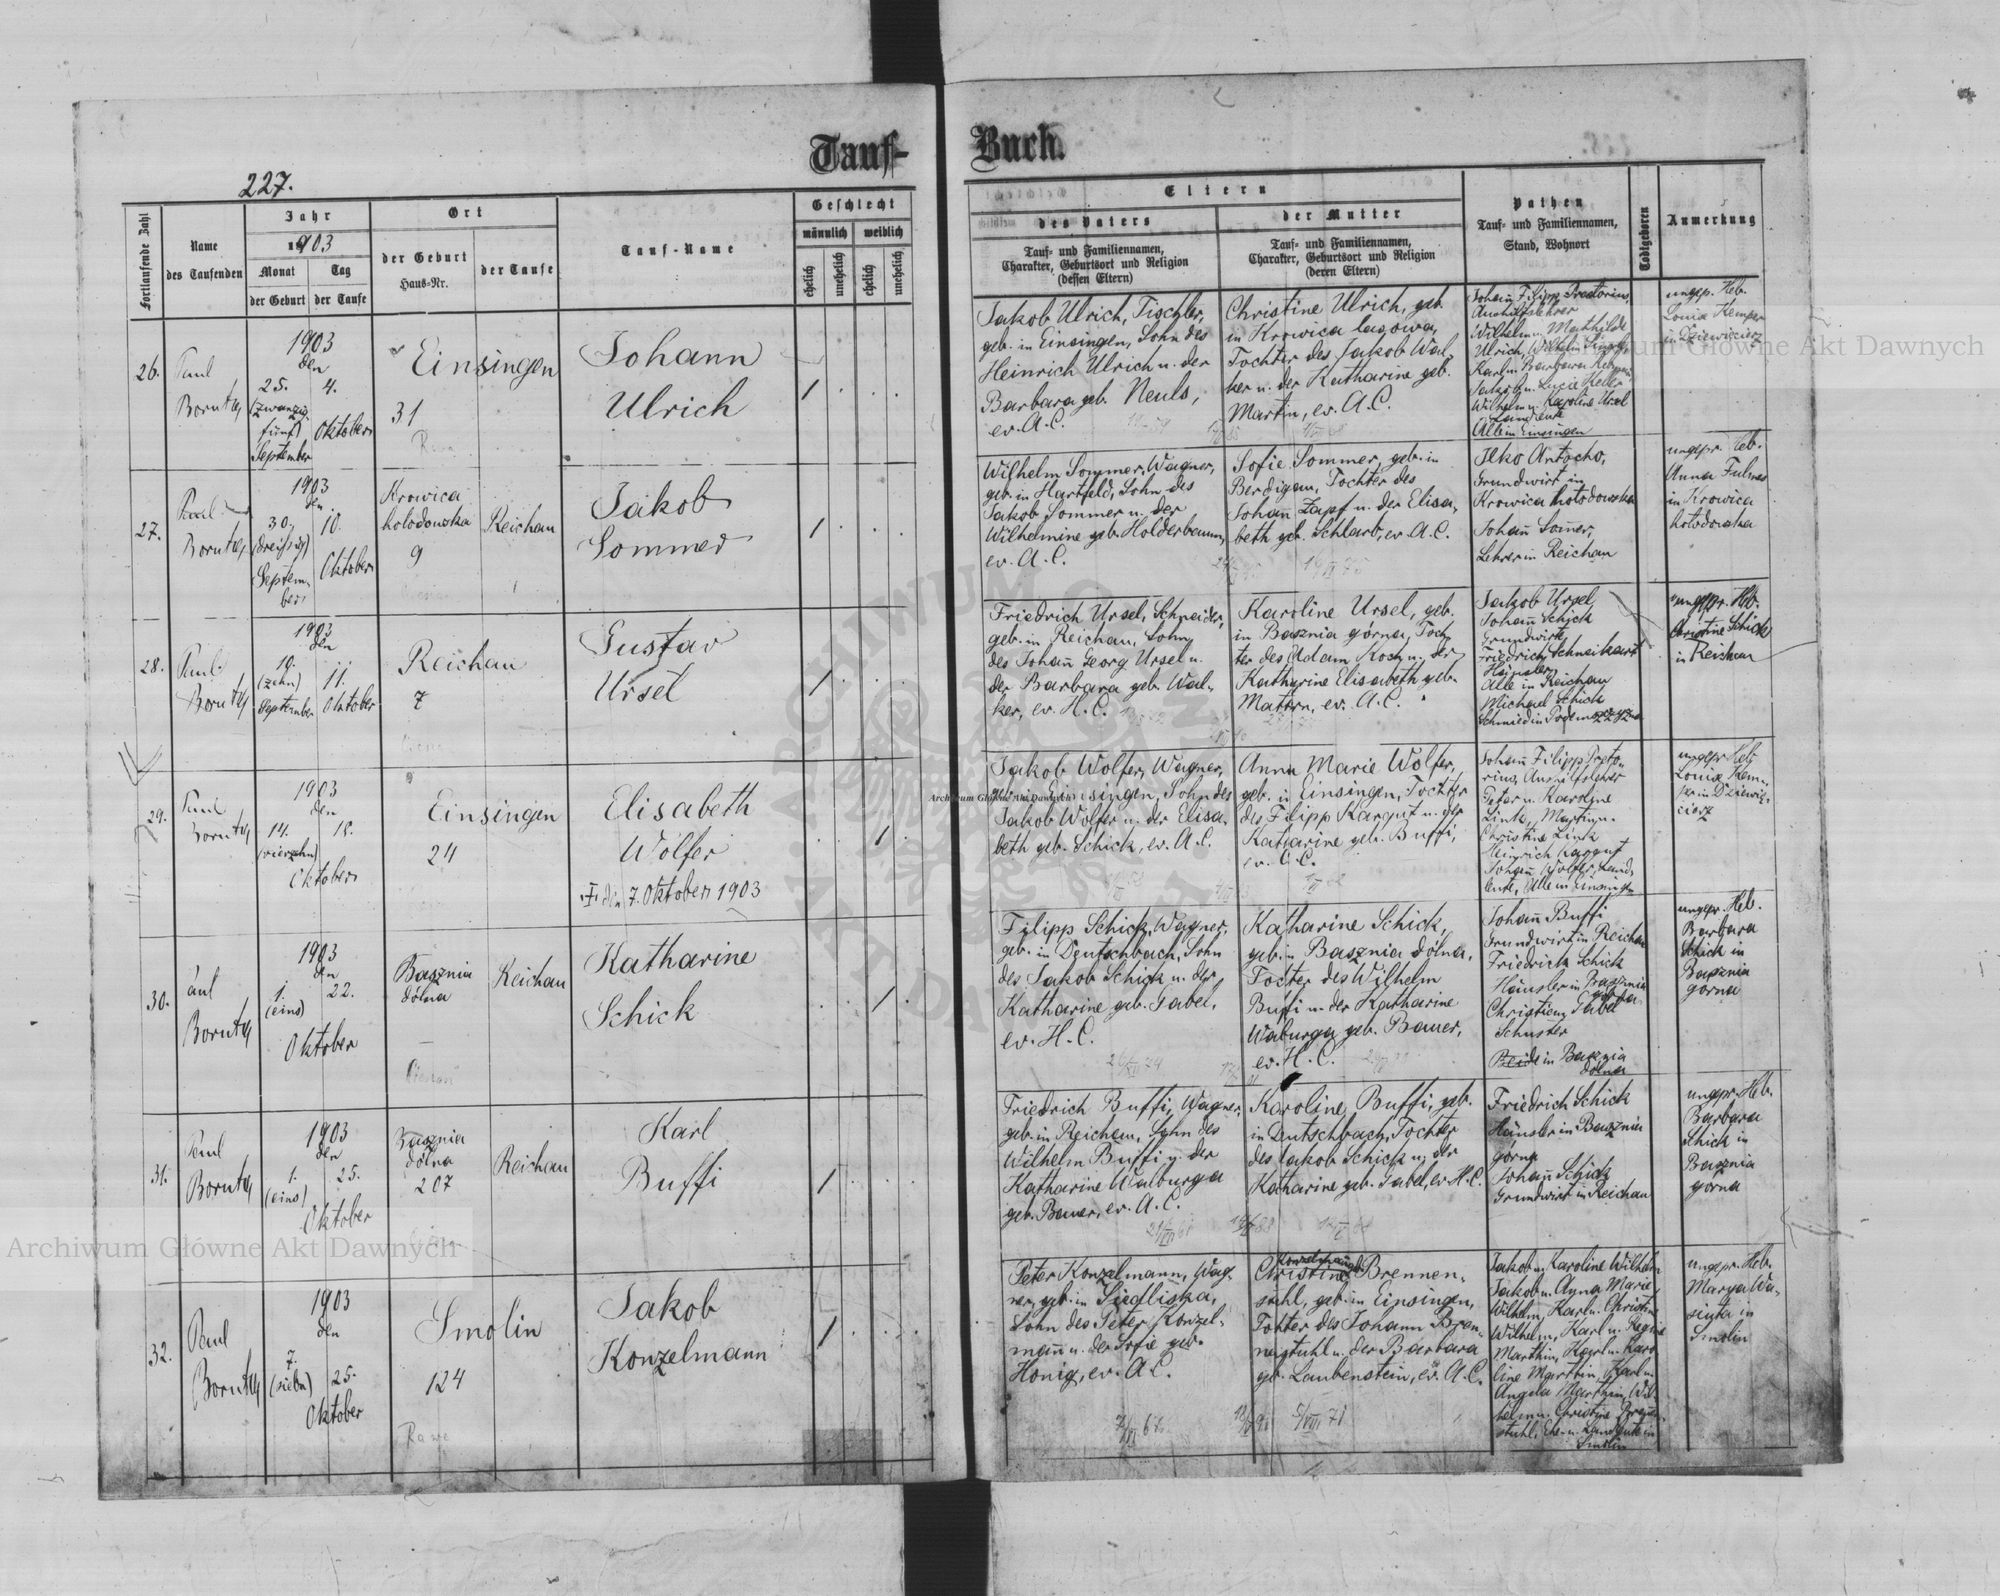 Tauf-
Buch.
227.
Fortlaufende Zahl
Name
des Taufenden
Jahr
1903
Monat
Tag
der Geburt
der Taufe
Ort
der Geburt
Haus-Nr.
der Taufe
Tauf-Name
Geschlecht
männlich
weiblich
ehelich
unehelich
ehelich
unehelich
Eltern
des Vaters
Tauf- und Familiennamen,
Charakter, Geburtsort und Religion
(dessen Eltern)
der Mutter
Tauf- und Familiennamen,
Charakter, Geburtsort und Religion
(deren Eltern)
Pathen
Tauf- und Familiennamen,
Stand, Wohnort
Todtgeboren
Anmerkung
26.
Paul
1903
den
25.
4.
(zwanzig
fünf)
September
Oktober
Einsingen
31
Johann
Ulrich
Jakob Ulrich, Tischler,
geb. in Einsingen, Sohn des
Heinrich Ulrich u. der
Barbara geb. Neuls,
ev. A. C.
Christine Ulrich, geb.
in Krowica lasowa,
Tochter des Jakob Wal-
ker u. der Katharine geb.
Martin, ev. A. C.
Johann Filipp
Aushilfslehrer
Wilhelm u. Mathilde
Ulrich, Wilhelm
Karl u. Barbara
Jakob u. Lucie Keller
Wilhelm u. Karoline Ursel
Landleute
Alle in Einsingen
ungepr. Heb.
Louia Kemper
27.
1903
den
30.
10.
(dreißig)
Septem-
ber
Oktober
Krowica
hołodowska
9
Reichau
Jakob
Sommer
Wilhelm Sommer, Wagner,
geb. in Hartfeld, Sohn des
Jakob Sommer u. der
Wilhelmine geb. Holderbaum,
ev. A. C.
Sofie Sommer, geb. in
Berdigau, Tochter des
Johañ Zapf u. der Elisa-
beth geb. Schlarb, ev. A. C.
Ilko
Grundwirt in
Krowica hołodowska
Johañ Somer,
Lehrer in Reichau
ungepr. Heb.
Anna
in Krowica
hołodowska
28.
Paul
1903
den
10.
(zehn)
September
11.
Oktober
Reichau
7
Gustav
Ursel
Friedrich Ursel, Schneider,
geb. in Reichau, Sohn
des Johañ Georg Ursel u.
der Barbara geb. Wal-
ker, ev. H. C.
Karoline Ursel, geb.
in Basznia górna, Toch-
ter des Adam Koch u. der
Katharine Elisabeth geb.
Mattern, ev. A. C.
Jakob Ursel
Johañ Schick
Grundwirte
Friedrich Schneikart
Häusler
Alle in Reichau
Michael Schick
Schmied in
ungepr. Heb.
Christine Schick
in Reichau
29.
Paul
1903
den
14.
18.
(vierzehn)
Oktober
Einsingen
24
Elisabeth
Wolfer
† den 7. Oktober 1903
Jakob Wolfer, Wagner,
geb. in Einsingen, Sohn des
Jakob Wolfer u. der Elisa-
beth geb. Schick, ev. A. C.
Anna Marie Wolfer,
geb. in Einsingen, Tochter
des Filipp Kargut u. der
Katharine geb. Buffi,
ev. A. C.
Johañ Filipp Präto-
rius, Aushilfslehrer
Peter u. Karoline
Link, Martin u.
Christine Link
Heinrich Kargut
Johañ Wolfer, Land-
leute, Alle in Einsingen
ungepr. Heb.
Louia Kem-
per in Dziewię-
cierz
30.
1903
den
1.
(eins)
22.
Oktober
Basznia
dolna
Reichau
Katharine
Schick
Filipp Schick, Wagner,
geb. in Deutschbach, Sohn
des Jakob Schick u. der
Katharine geb. Gabel,
ev. H. C.
Katharine Schick,
geb. in Basznia dolna,
Tochter des Wilhelm
Buffi u. der Katharine
Waburga geb. Bauer,
ev. H. C.
Johañ Buffi
Grundwirt in Reichau
Friedrich Schick
Häusler in Basznia
Christian Gabel
Schuster
Beide in Basznia
dolna
ungepr. Heb.
Barbara
Schick in
Basznia
gorna
31.
Paul
1903
den
1.
(eins)
25.
Oktober
Basznia
dolna
207
Reichau
Karl
Buffi
Friedrich Buffi, Wagner,
geb. in Reichau, Sohn des
Wilhelm Buffi u. der
Katharine Walburga
geb. Bauer, ev. A. C.
Karoline Buffi, geb.
in Deutschbach, Tochter
des Jakob Schick u. der
Katharine geb. Gabel, ev. H. C.
Friedrich Schick
Häusler in Basznia
gorna
Johañ Schick
Grundwirt in Reichau
ungepr. Heb.
Barbara
Schick in
Basznia
gorna
32.
Paul
1903
den
7.
(sieben)
25.
Oktober
Smolin
124
Rawa
Jakob
Konzelmann
Peter Konzelmann, Wag-
ner, geb. in Siedliska,
Sohn des Peter Konzel-
mañ u. der Sofie geb.
Honig, ev. A. C.
Konzelmañ geb.
Christine Brennen-
stuhl, geb. in Einsingen,
Tochter des Johann Bren-
nenstuhl u. der Barbara
geb. Laubenstein, ev. A. C.
Jakob u. Karoline Wilhelm
Jakob u. Anna Marie
Wilhelm, Karl u. Christine
Wilhelm, Karl u. Regine
Marthin, Karl u. Karo-
line Marthin, Karl u.
Angela Marthin, Wil-
helm u. Christine
stuhl,
Smolin
ungepr. Heb.
Marya Wa-
in
Smolin
Archiwum Główne Akt Dawnych
Archiwum Główne Akt Dawnych
Archiwum Główne Akt Dawnych